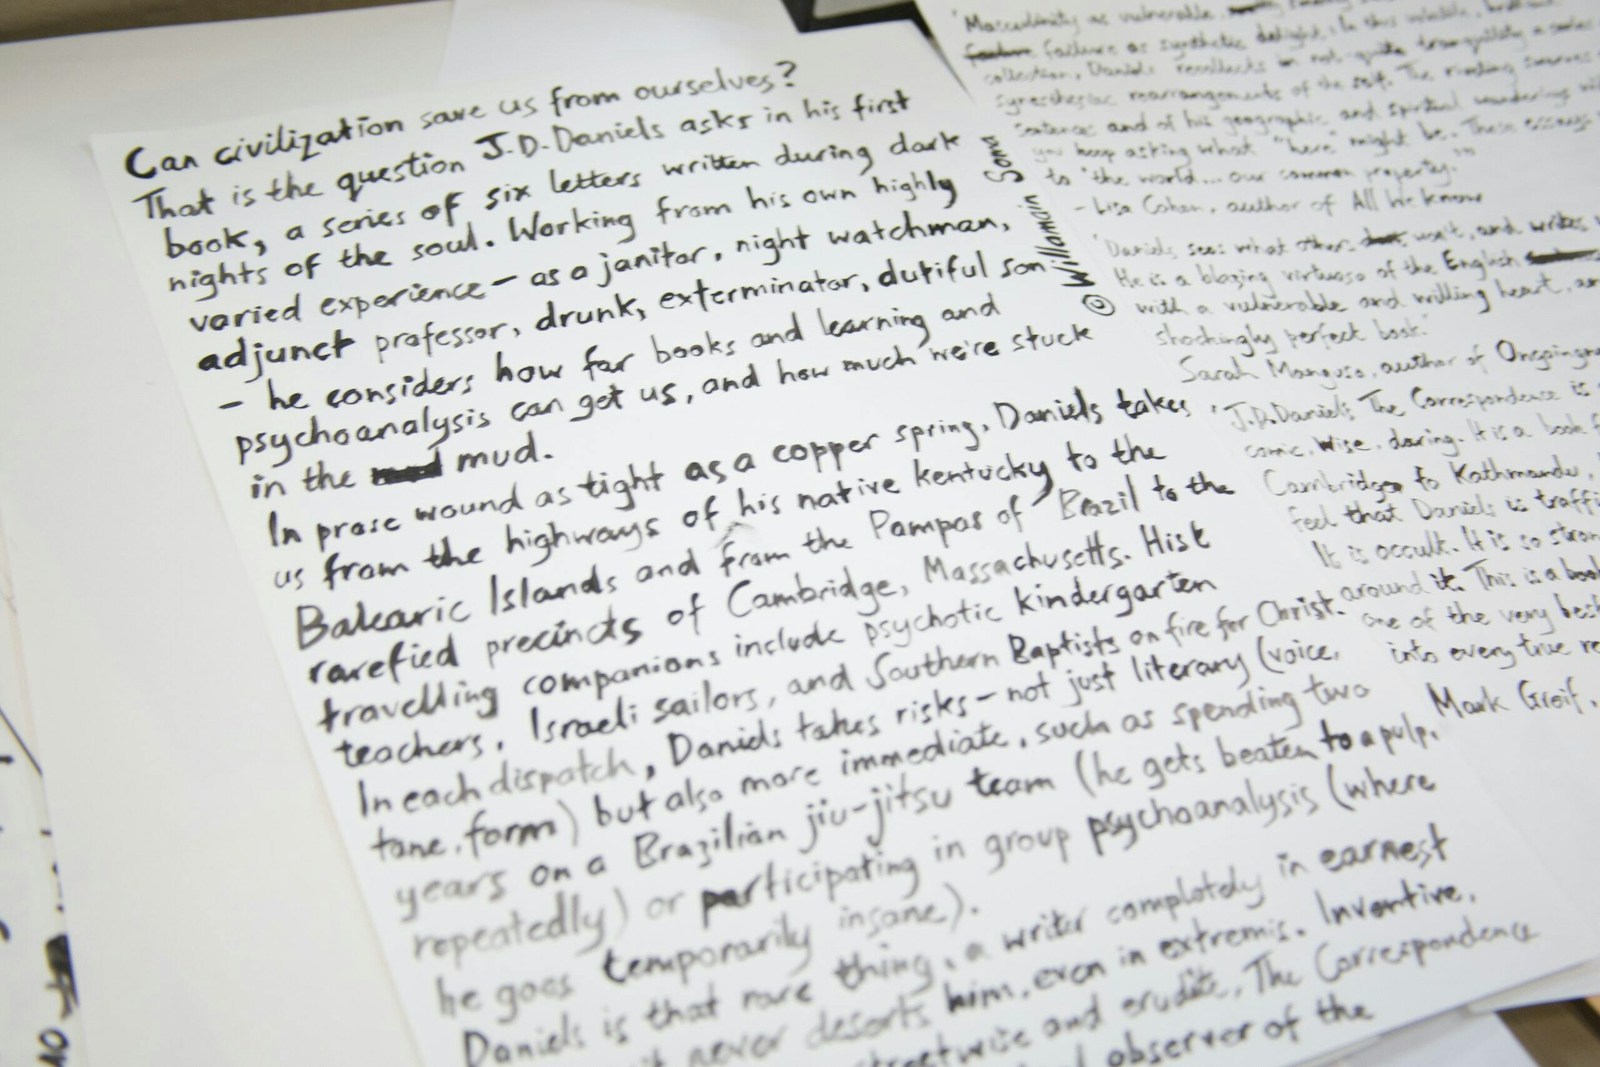 Can civilization save us from ourselves?
That is the question J.D. Daniels asks in his first
book, a series of six letters written during dark
nights of the soul. Working from his own highly
varied experience – as a janitor, night watchman,
adjunct professor, drunk, exterminator, dutiful son
– he considers how far books and learning and
psychoanalysis can get us, and how much we're stuck
in the mud.
In prose wound as tight as a copper spring, Daniels takes
us from the highways of his native kentucky to the
Balearic Islands and from the Pampas of Brazil to the
rarefied precincts of Cambridge, Massachusetts. His
travelling companions include psychotic kindergarten
teachers, Israeli sailors, and Southern Baptists on fire for Christ.
In each dispatch, Daniels takes risks – not just literary (voice,
tone, form) but also more immediate, such as spending two
years on a Brazilian jiu-jitsu team (he gets beaten to a pulp,
repeatedly) or participating in group psychoanalysis (where
he goes temporarily insane).
Daniels is that rare thing, a writer completely in earnest
never deserts him, even in extremis. Inventive,
streetwise and erudite, The Correspondence
observer of the
© Willemain
"Masculinity as vulnerable
failure as synthetic delight, In this volatile, brilliant
collection, Daniels recollects in not-quite tranquillity a series
synesthesiac rearrangements of the self. The riveting
sentences and of his geographic and spiritual wanderings
you keep asking what "here" might be. These essays
to 'the world... our common property.'"
- Lisa Cohen, author of All We know
"Daniels sees what others won't, and writes
He is a blazing virtuoso of the English
with a vulnerable and willing heart, an
shockingly perfect book."
Sarah Manguso, author of Ongoingness
J.D. Daniels The Correspondence is
comic, wise, daring. It is a book
Cambridge to Kathmandu,
feel that Daniels is
It is occult. It is so
around it. This is a book
one of the very best
into every true
Mark Greif,